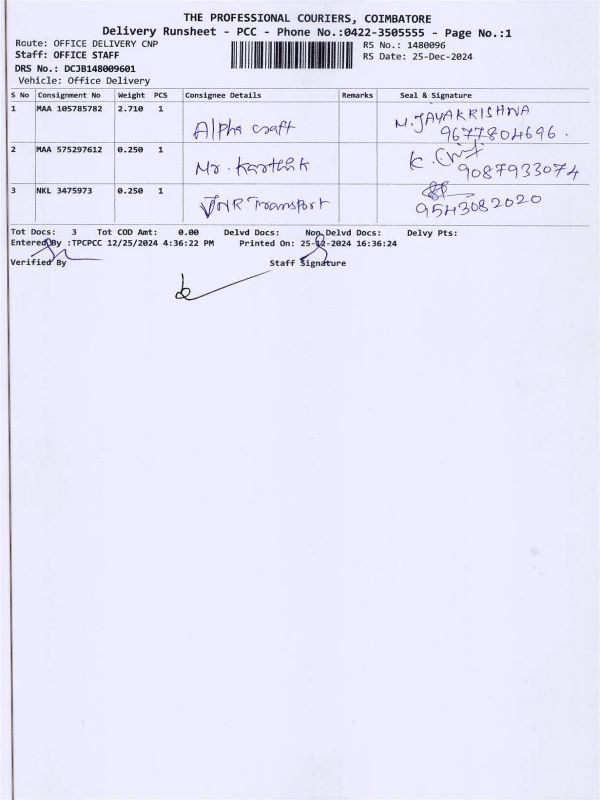 THE PROFESSIONAL COURIERS, COIMBATORE
Delivery Runsheet - PCC - Phone No.:0422-3505555 - Page No.:1
Route: OFFICE DELIVERY CNP
RS No.: 1480096
Staff: OFFICE STAFF
RS Date: 25-Dec-2024
DRS No.: DCJB148009601
Vehicle: Office Delivery
S No Consignment No Weight PCS Consignee Details Remarks Seal & Signature
1 MAA 105785782 2.710 1 Alpha craft M. JAYAKRISHNA
9677804696.
2 MAA 575297612 0.250 1 Mr. Karthik K.
9087933074
3 NKL 3475973 0.250 1 JNR Transport
9543082020
Tot Docs: 3 Tot COD Amt: 0.00 Delvd Docs: Non Delvd Docs: Delvy Pts:
Entered By :TPCPCC 12/25/2024 4:36:22 PM Printed On: 25-12-2024 16:36:24
Verified By Staff Signature